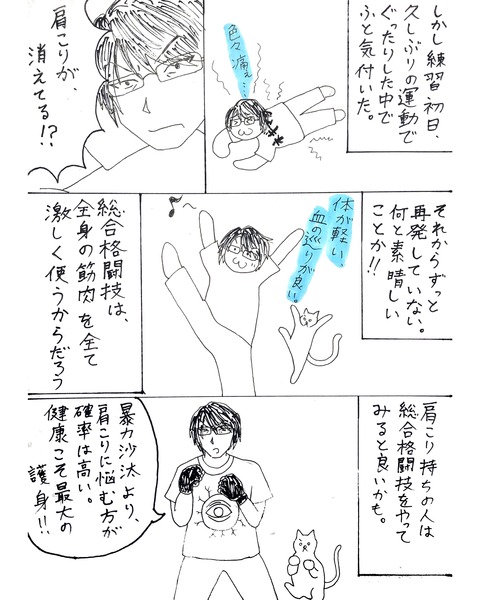 しかし練習初日、
久しぶりの運動で
ぐったりした中で
ふと気付いた。
色々痛ぇ…
肩こりが、
消えてる!?
それからずっと
再発していない。
何と素晴しい
ことか!!
体が軽い、
血の巡りが良い。
総合格闘技は、
全身の筋肉を全て
激しく使うからだろう
肩こり持ちの人は
総合格闘技をやって
みると良いかも。
暴力沙汰より、
肩こりに悩む方が
確率は高い。
健康こそ最大の
護身!!